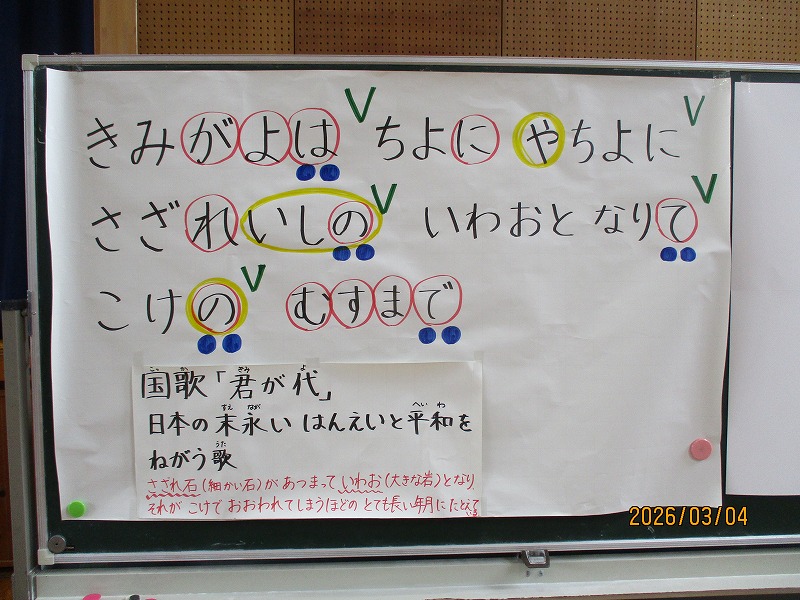 きみがよは ちよに やちよに
さざれいしの いわおと なりて
こけの むすまで
国歌「君が代」
日本の末永い はんえいと平和を
ねがう歌
さざれ石(細かい石)が あつまって いわお(大きな岩)となり、
それが こけで おおわれてしまうほどの とても長い年月に たとえて
いる。
2026/03/04